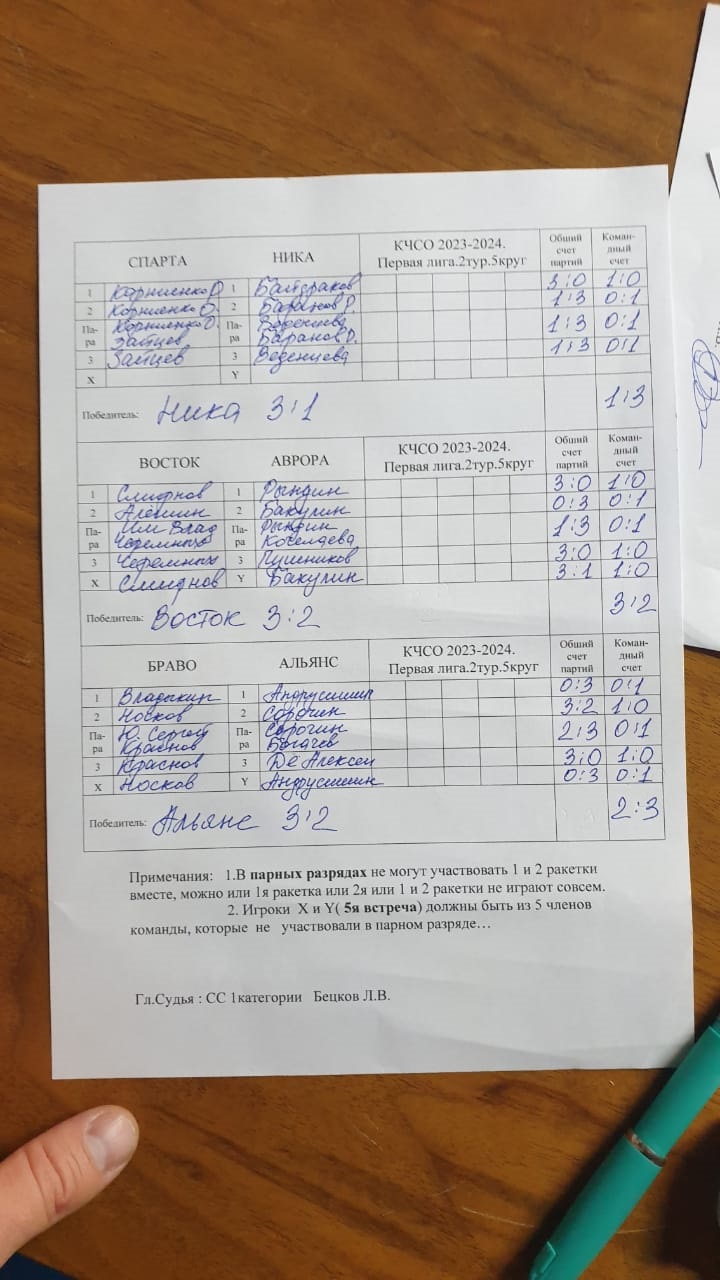 СПАРТА НИКА КЧСО 2023-2024. Первая лига.2тур.5круг Общий счет партий Коман-дный счет
1 Корниенко 1 Байдраков 3:0 1:0
2 Корниенко О. 2 Баранов Р. 1:3 0:1
Па-ра Корниенко О. Зайцев Па-ра Веденцева Баранов Р. 1:3 0:1
3 Зайцев 3 Веденцева 1:3 0:1
X Y
Победитель: Ника 3:1 1:3
ВОСТОК АВРОРА КЧСО 2023-2024. Первая лига.2тур.5круг Общий счет партий Коман-дный счет
1 Смирнов 1 Рындин 3:0 1:0
2 Алёшин 2 Бакулин 0:3 0:1
Па-ра Влад Черемных Па-ра Рындин 1:3 0:1
3 Черемных 3 Лушников 3:0 1:0
X Смирнов Y Бакулин 3:1 1:0
Победитель: Восток 3:2 3:2
БРАВО АЛЬЯНС КЧСО 2023-2024. Первая лига.2тур.5круг Общий счет партий Коман-дный счет
1 Владыкин 1 Андрусишин 0:3 0:1
2 Носков 2 Сорочин 3:2 1:0
Па-ра Ю. Сергей Краснов Па-ра Сорочин Богачев 2:3 0:1
3 Краснов 3 Де Алексей 3:0 1:0
X Носков Y Андрусишин 0:3 0:1
Победитель: Альянс 3:2 2:3
Примечания: 1.В парных разрядах не могут участвовать 1 и 2 ракетки
вместе, можно или 1я ракетка или 2я или 1 и 2 ракетки не играют совсем.
2. Игроки X и Y( 5я встреча) должны быть из 5 членов
команды, которые не участвовали в парном разряде…
Гл.Судья : СС 1категории Бецков Л.В.